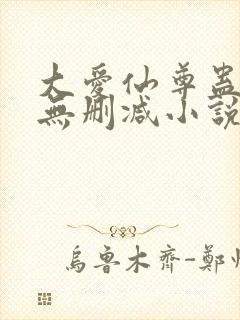 大愛仙尊蠱
無刪減小說
烏魯木齊-鄭州